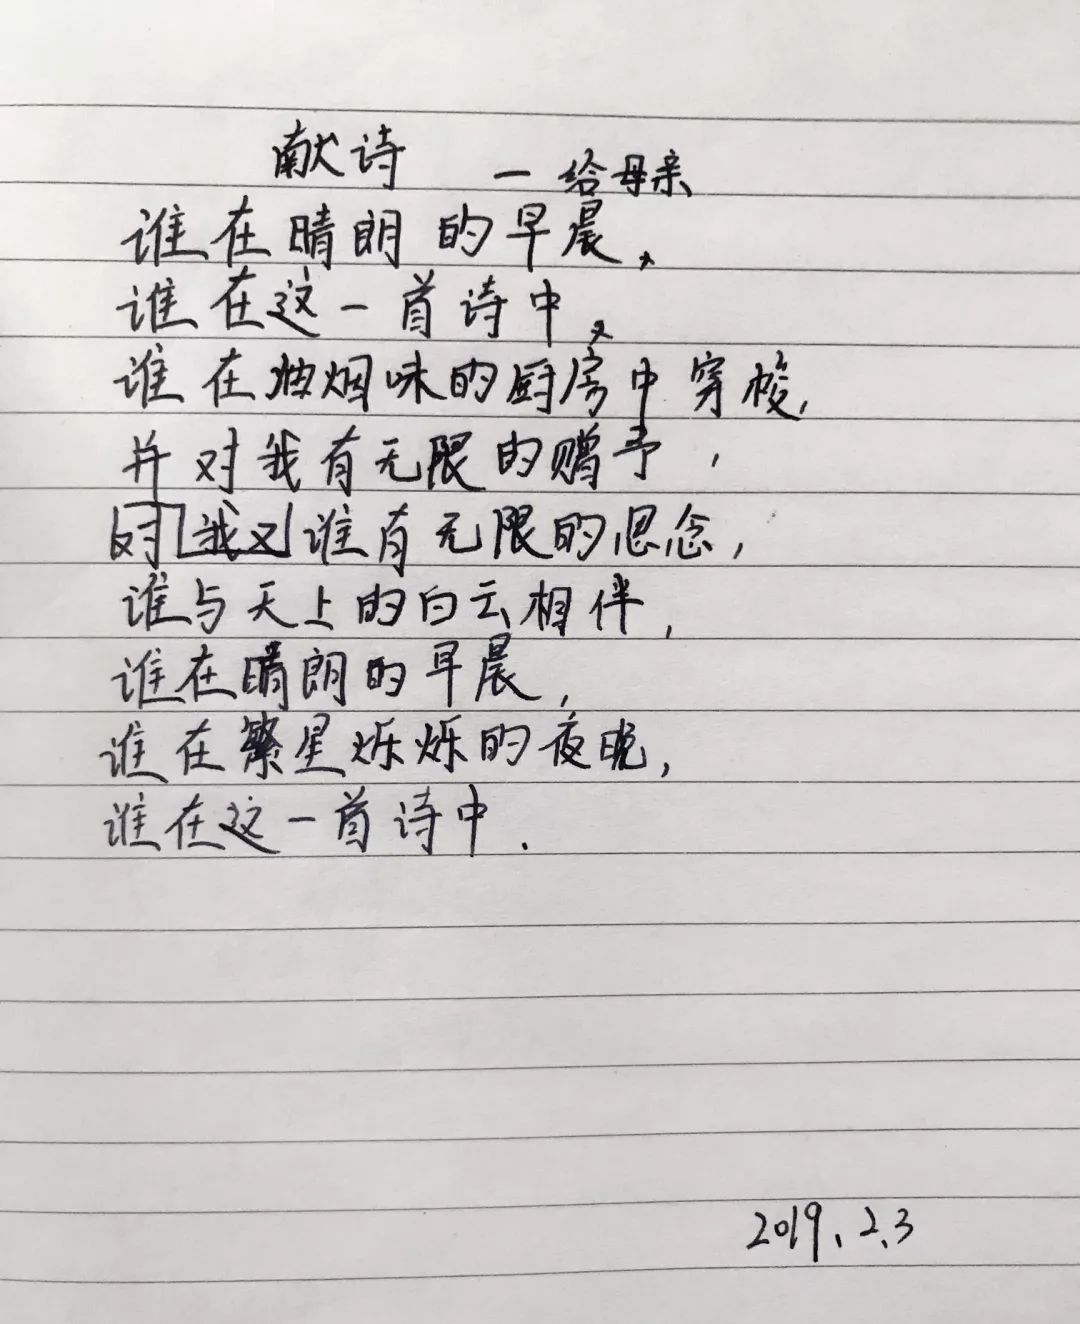 献诗 — 给母亲
谁在晴朗的早晨,
谁在这一首诗中,
谁在油烟味的厨房中穿梭,
并对我有无限的赠予,
对我又谁有无限的思念,
谁与天上的白云相伴,
谁在晴朗的早晨,
谁在繁星烁烁的夜晚,
谁在这一首诗中.
2019.2.3